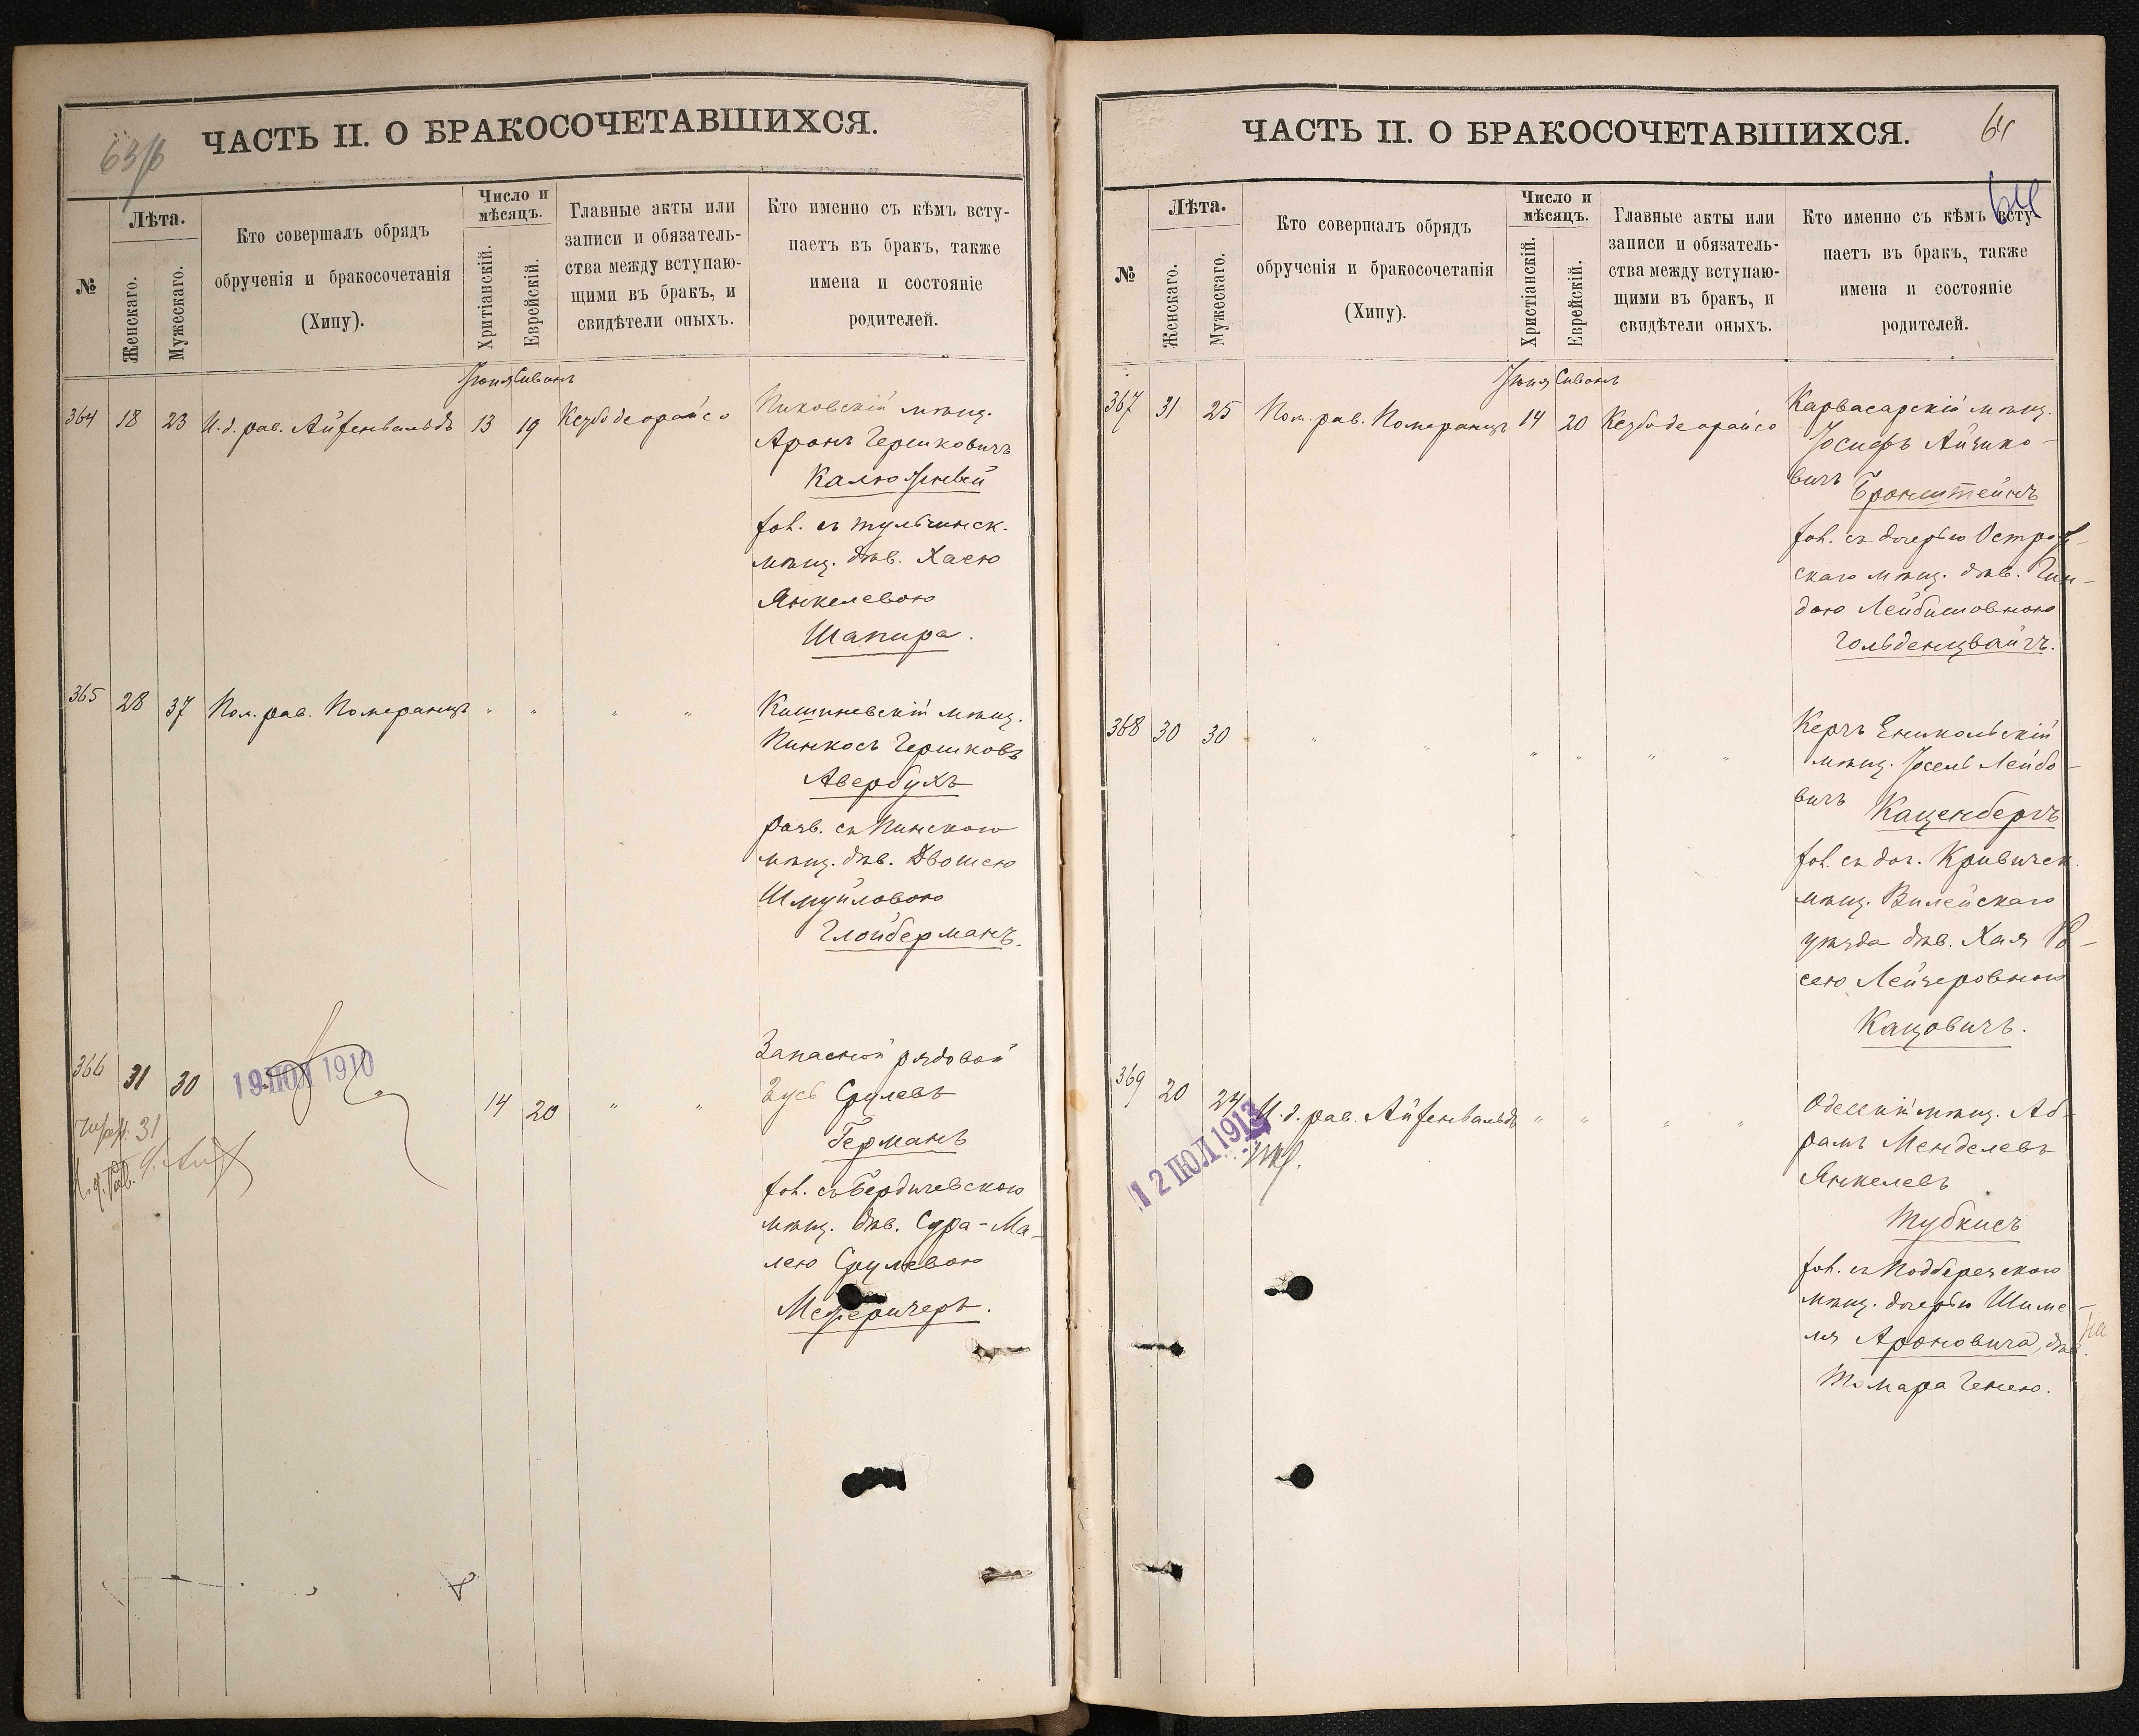 63 б
ЧАСТЬ II. О БРАКОСОЧЕТАВШИХСЯ.
№
Лѣта.
Женскаго.
Мужескаго.
Кто совершалъ обрядъ
обрученія и бракосочетанія
(Хипу).
Число и
мѣсяцъ.
Хритіанскій.
Еврейскій.
Главные акты или
записи и обязатель-
ства между вступаю-
щими въ бракъ, и
свидѣтели оныхъ.
Кто именно съ кѣмъ всту-
паетъ въ бракъ, также
имена и состояніе
родителей.
Іюня Сиванъ
364 18 23 И. д. рав. Айзенвальдъ 13 19 Кезубо деорайсо
Пиковскій мѣщ.
Аронъ Гершковичъ
Калюжный
хол. съ тульчинск.
мѣщ. дѣв. Хаею
Янкелевою
Шапира.
365 28 37 Пом. рав. Померанцъ " " " "
Кишиневскій мѣщ.
Пинкосъ Гершковъ
Авербухъ
разв. съ Пинскою
мѣщ. дѣв. Двошею
Шмуйловою
Глойберманъ.
366 31 30 14 20 " "
19 ІЮЛ 1910
31
Запасной рядовой
Зусь Срулевъ
Германъ
хол. съ Бердичевскою
мѣщ. дѣв. Сура-Ма-
лею Срулевою
Межеричеръ.
64
64
ЧАСТЬ II. О БРАКОСОЧЕТАВШИХСЯ.
№
Лѣта.
Женскаго.
Мужескаго.
Кто совершалъ обрядъ
обрученія и бракосочетанія
(Хипу).
Число и
мѣсяцъ.
Христіанскій.
Еврейскій.
Главные акты или
записи и обязатель-
ства между вступаю-
щими въ бракъ, и
свидѣтели оныхъ.
Кто именно съ кѣмъ всту-
паетъ въ бракъ, также
имена и состояніе
родителей.
Іюня Сиванъ
367 31 25 Пом. рав. Померанцъ 14 20 Кезубо деорайсо
Карвасарскій мѣщ.
Іосифъ Айзико-
вичъ Бронштейнъ
хол. съ дочерью Острож-
скаго мѣщ. дѣв. Гин-
дою Лейбишовною
Гольденцвайгъ.
368 30 30 " " " " " "
Керчъ Еникольскій
мѣщ. Іосель Лейбо-
вичъ Каценбергъ
хол. съ доч. Кривичск.
мѣщ. Вилейскаго
уѣзда дѣв. Хая Ро-
сею Лейзеровною
Кацовичъ.
369 20 24 И. д. рав. Айзенвальдъ " " " "
12 ІЮЛ 1913
Одесскій мѣщ. Аб-
рамъ Менделевъ
Янкелевъ
Тубкисъ
хол. съ Подберезскою
мѣщ. дочерью Шиме-
ля Ароновича, дѣв.
Томара Генею.